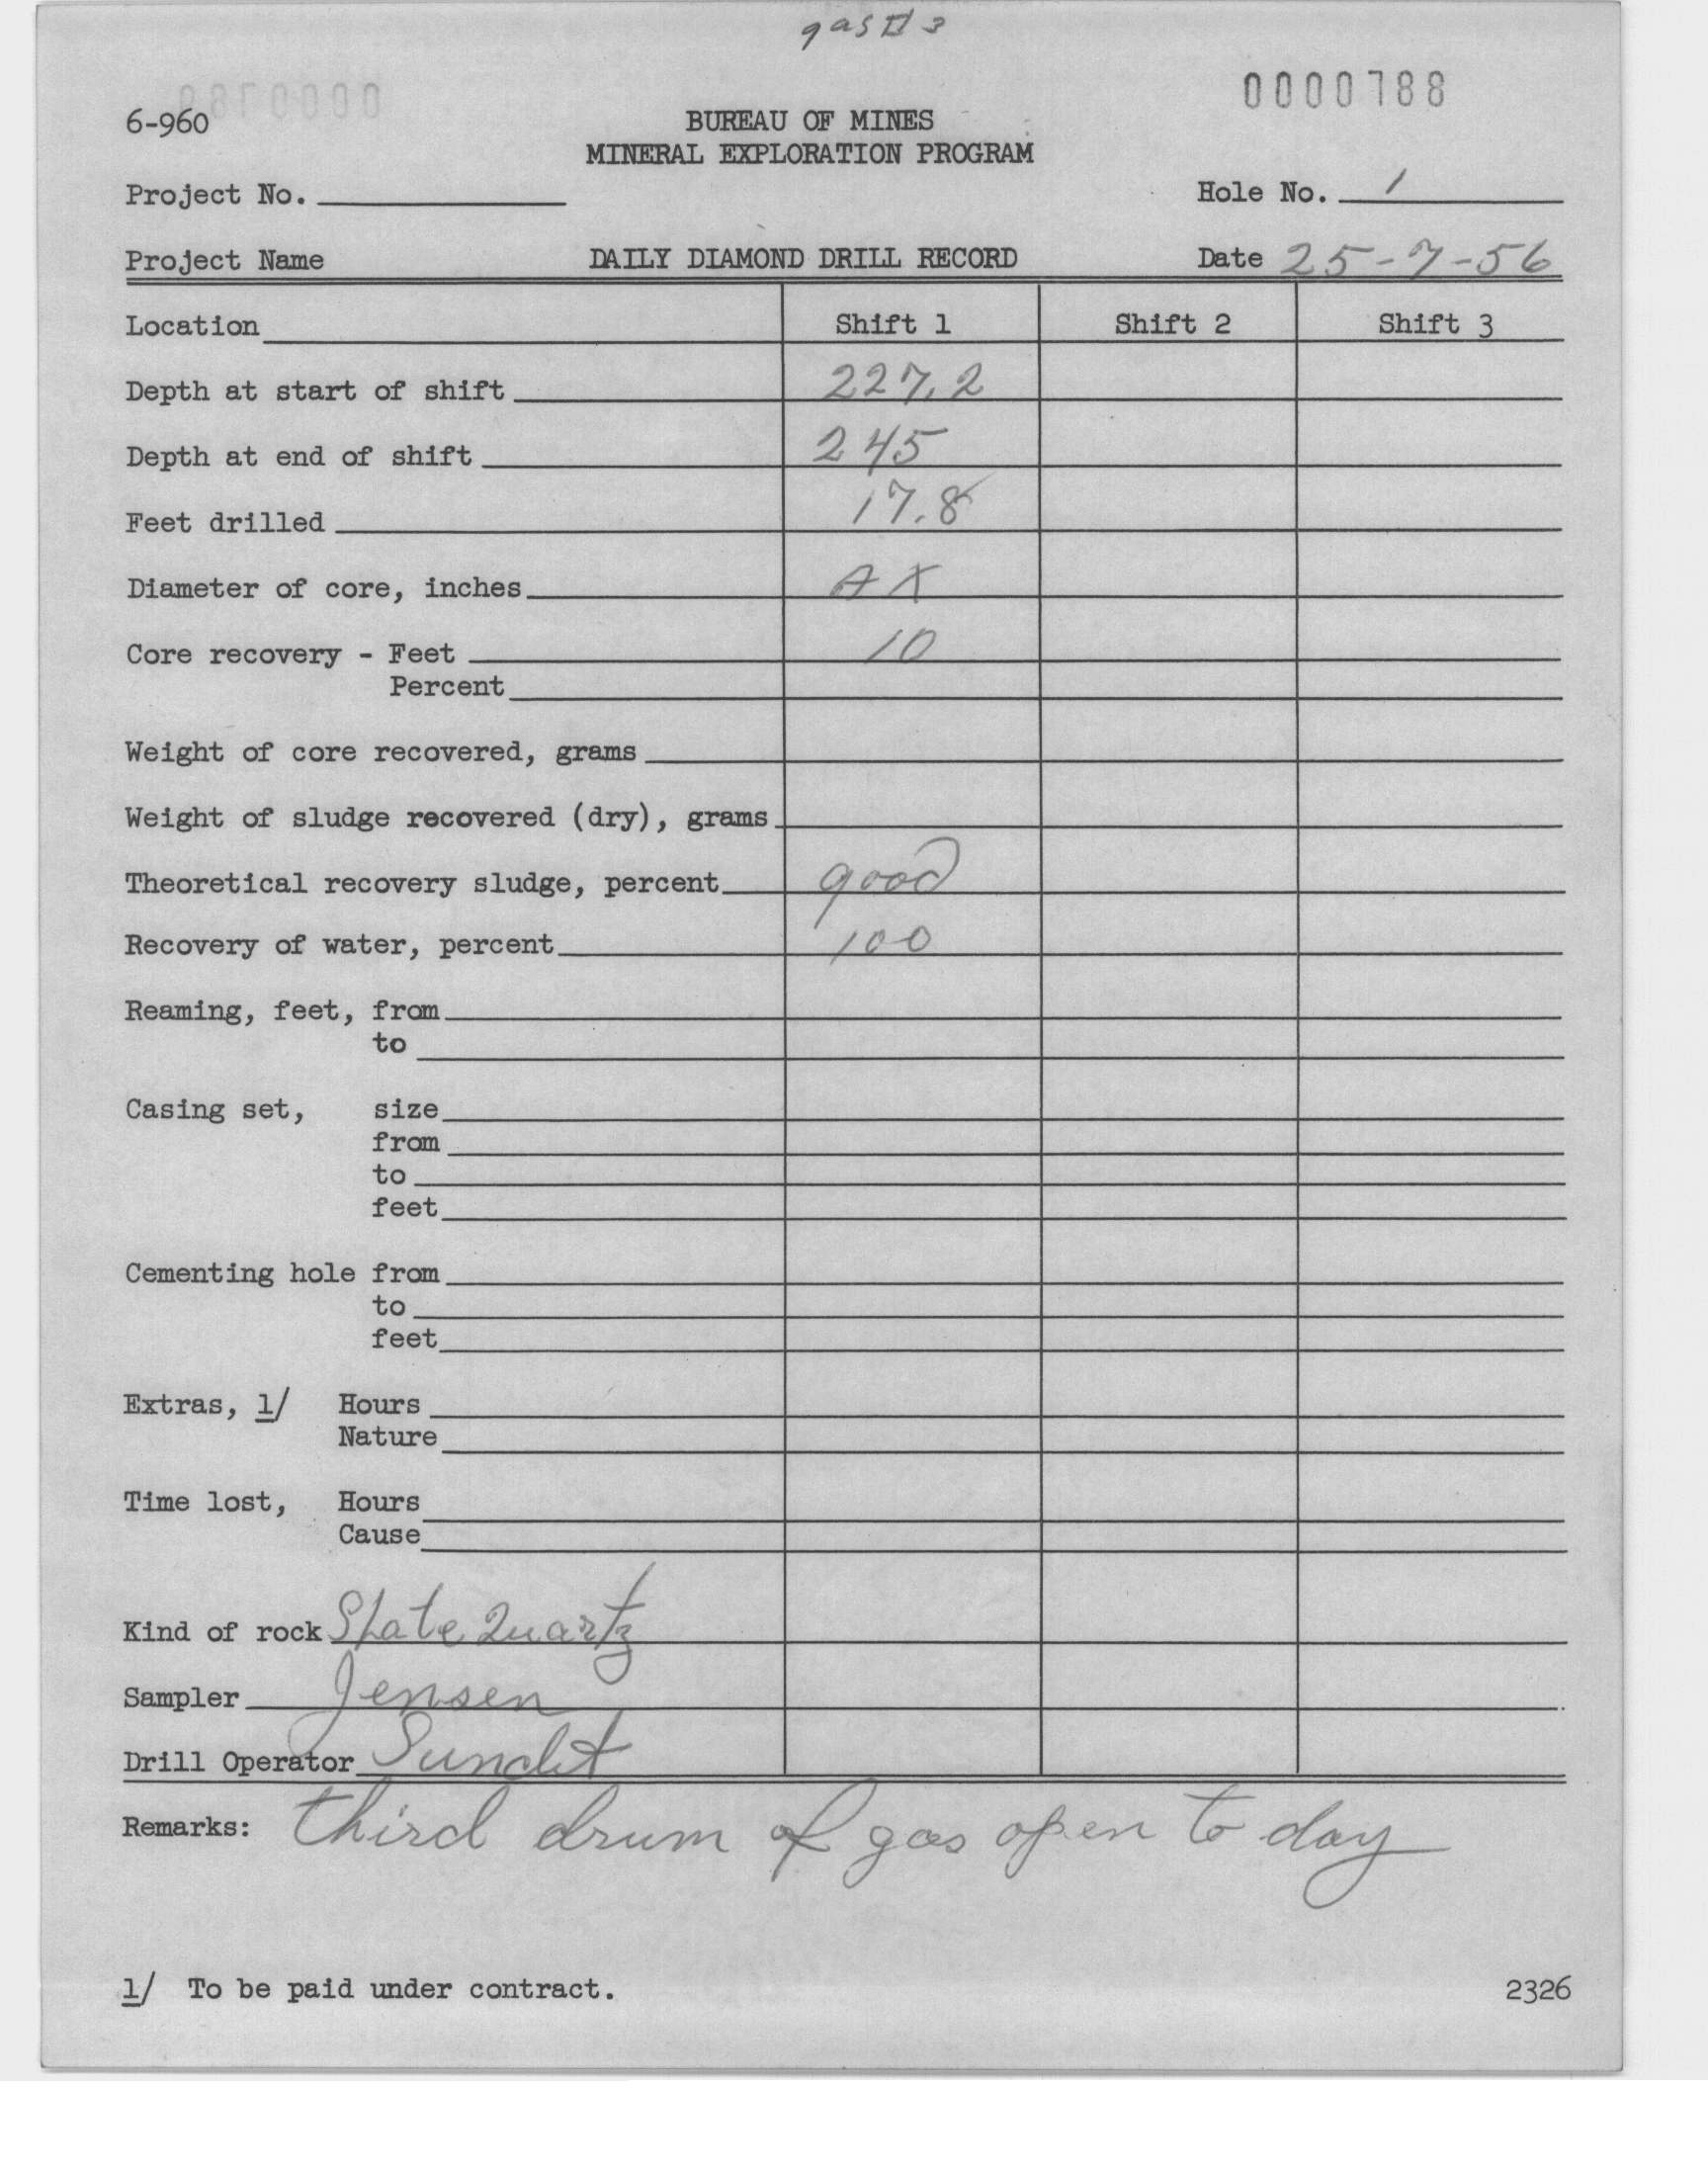 gas # 3
0000788
6-960
BUREAU OF MINES
MINERAL EXPLORATION PROGRAM
Project No.
Hole No. 1
Project Name DAILY DIAMOND DRILL RECORD Date 25-7-56
Location Shift 1 Shift 2 Shift 3
Depth at start of shift 227.2
Depth at end of shift 245
Feet drilled 17.8
Diameter of core, inches AX
Core recovery - Feet 10
Percent
Weight of core recovered, grams
Weight of sludge recovered (dry), grams
Theoretical recovery sludge, percent good
Recovery of water, percent 100
Reaming, feet, from
to
Casing set, size
from
to
feet
Cementing hole from
to
feet
Extras, 1/ Hours
Nature
Time lost, Hours
Cause
Kind of rock Slate Quartz
Sampler Jensen
Drill Operator
Remarks: third drum of gas open to day
1/ To be paid under contract.
2326